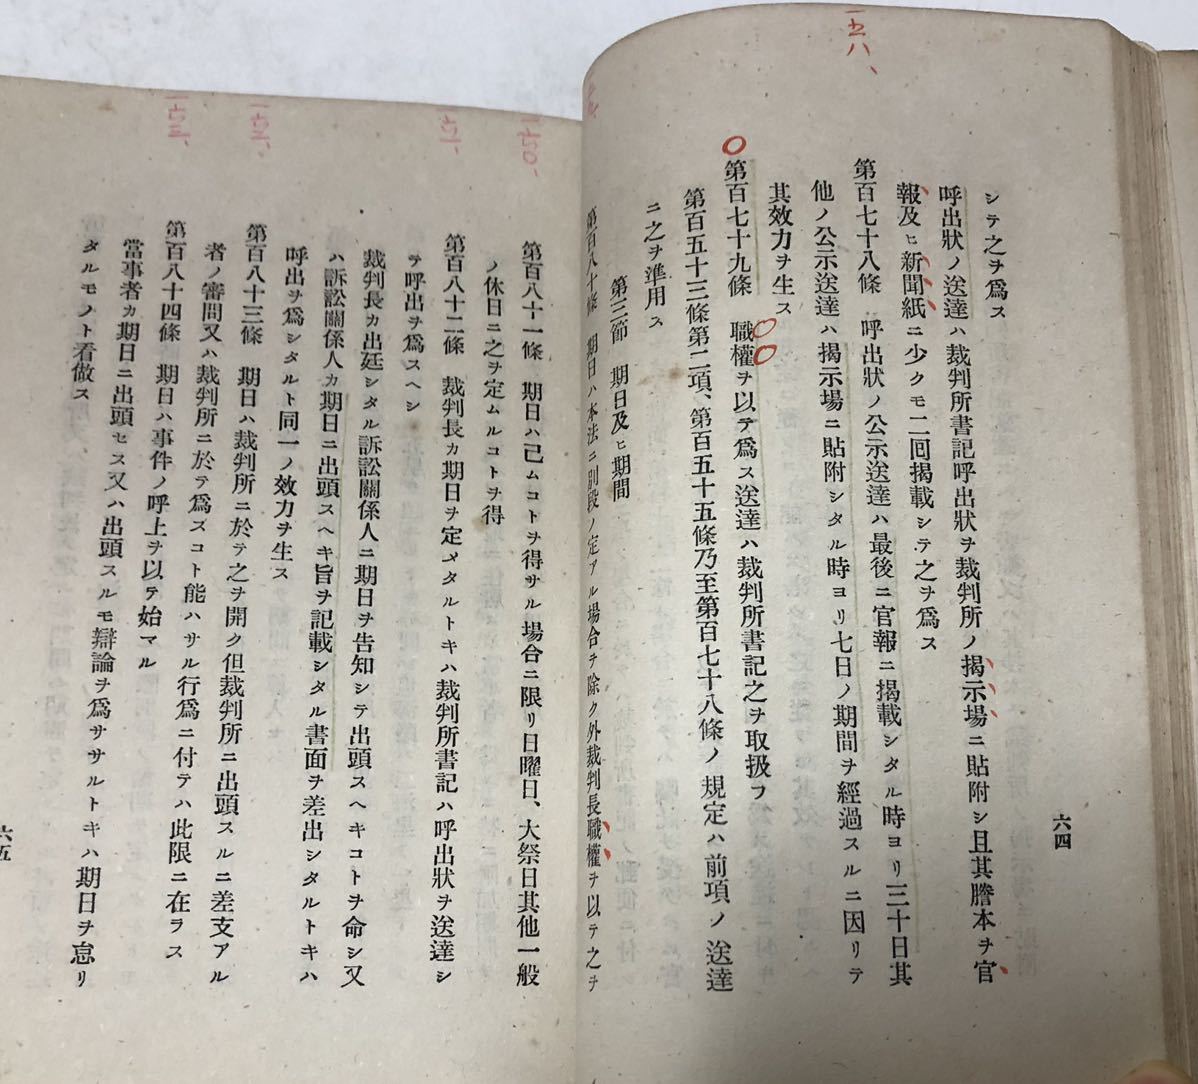 一五八、
六四
シテ之ヲ爲ス
呼出狀ノ送達ハ裁判所書記呼出狀ヲ裁判所ノ揭示場ニ貼附シ且其謄本ヲ官
報及ヒ新聞紙ニ少クモ二回揭載シテ之ヲ爲ス
第百七十八條 呼出狀ノ公示送達ハ最後ニ官報ニ揭載シタル時ヨリ三十日其
他ノ公示送達ハ揭示場ニ貼附シタル時ヨリ七日ノ期間ヲ經過スルニ因リテ
其效力ヲ生ス
第百七十九條 職權ヲ以テ爲ス送達ハ裁判所書記之ヲ取扱フ
第百五十三條第二項、第百五十五條乃至第百七十八條ノ規定ハ前項ノ送達
ニ之ヲ準用ス
第三節 期日及ヒ期間
第百八十條 期日ハ本法ニ別段ノ定アル場合ヲ除ク外裁判長職權ヲ以テ之ヲ
第百八十一條 期日ハ已ムコトヲ得サル場合ニ限リ日曜日、大祭日其他一般
ノ休日ニ之ヲ定ムルコトヲ得
第百八十二條 裁判長カ期日ヲ定メタルトキハ裁判所書記ハ呼出狀ヲ送達シ
テ呼出ヲ爲スヘシ
裁判長カ出廷シタル訴訟關係人ニ期日ヲ告知シテ出頭スヘキコトヲ命シ又
ハ訴訟關係人カ期日ニ出頭スヘキ旨ヲ記載シタル書面ヲ差出シタルトキハ
呼出ヲ爲シタルト同一ノ效力ヲ生ス
第百八十三條 期日ハ裁判所ニ於テ之ヲ開ク但裁判所ニ出頭スルニ差支アル
者ノ審問又ハ裁判所ニ於テ爲スコト能ハサル行爲ニ付テハ此限ニ在ラス
第百八十四條 期日ハ事件ノ呼上ヲ以テ始マル
當事者カ期日ニ出頭セス又ハ出頭スルモ辯論ヲ爲ササルトキハ期日ヲ怠リ
タルモノト看做ス
六五